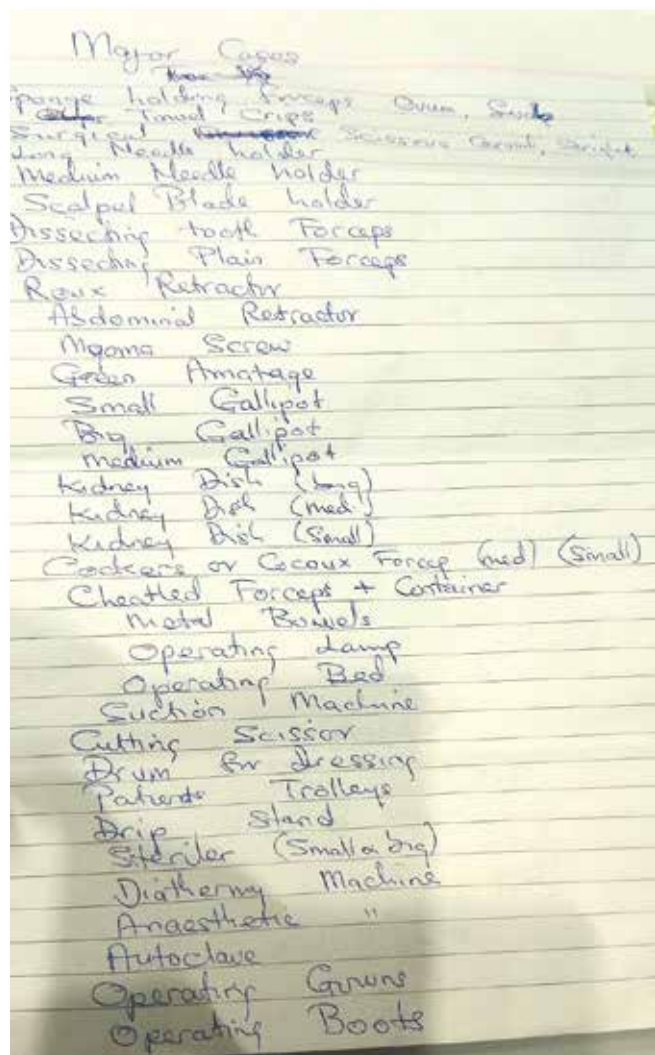 Major Cases
Sponge holding Forceps Ovum,
Towel Crips
Surgical Scissors
Long Needle holder
Medium Needle holder
Scalpel Blade holder
Dissecting tooth Forceps
Dissecting Plain Forceps
Roux Retractor
Abdominal Retractor
Myoma Screw
Green Amatage
Small Gallipot
Big Gallipot
Medium Gallipot
Kidney Dish (big)
Kidney Dish (med)
Kidney Dish (Small)
Cockers or Forcep (med) (Small)
Cheatled Forceps + Container
Metal Bowels
Operating Lamp
Operating Bed
Suction Machine
Cutting Scissor
Drum for dressing
Patients Trolleys
Drip Stand
Steriler (Small & big)
Diathermy Machine
Anaesthetic "
Autoclave
Operating Gowns
Operating Boots